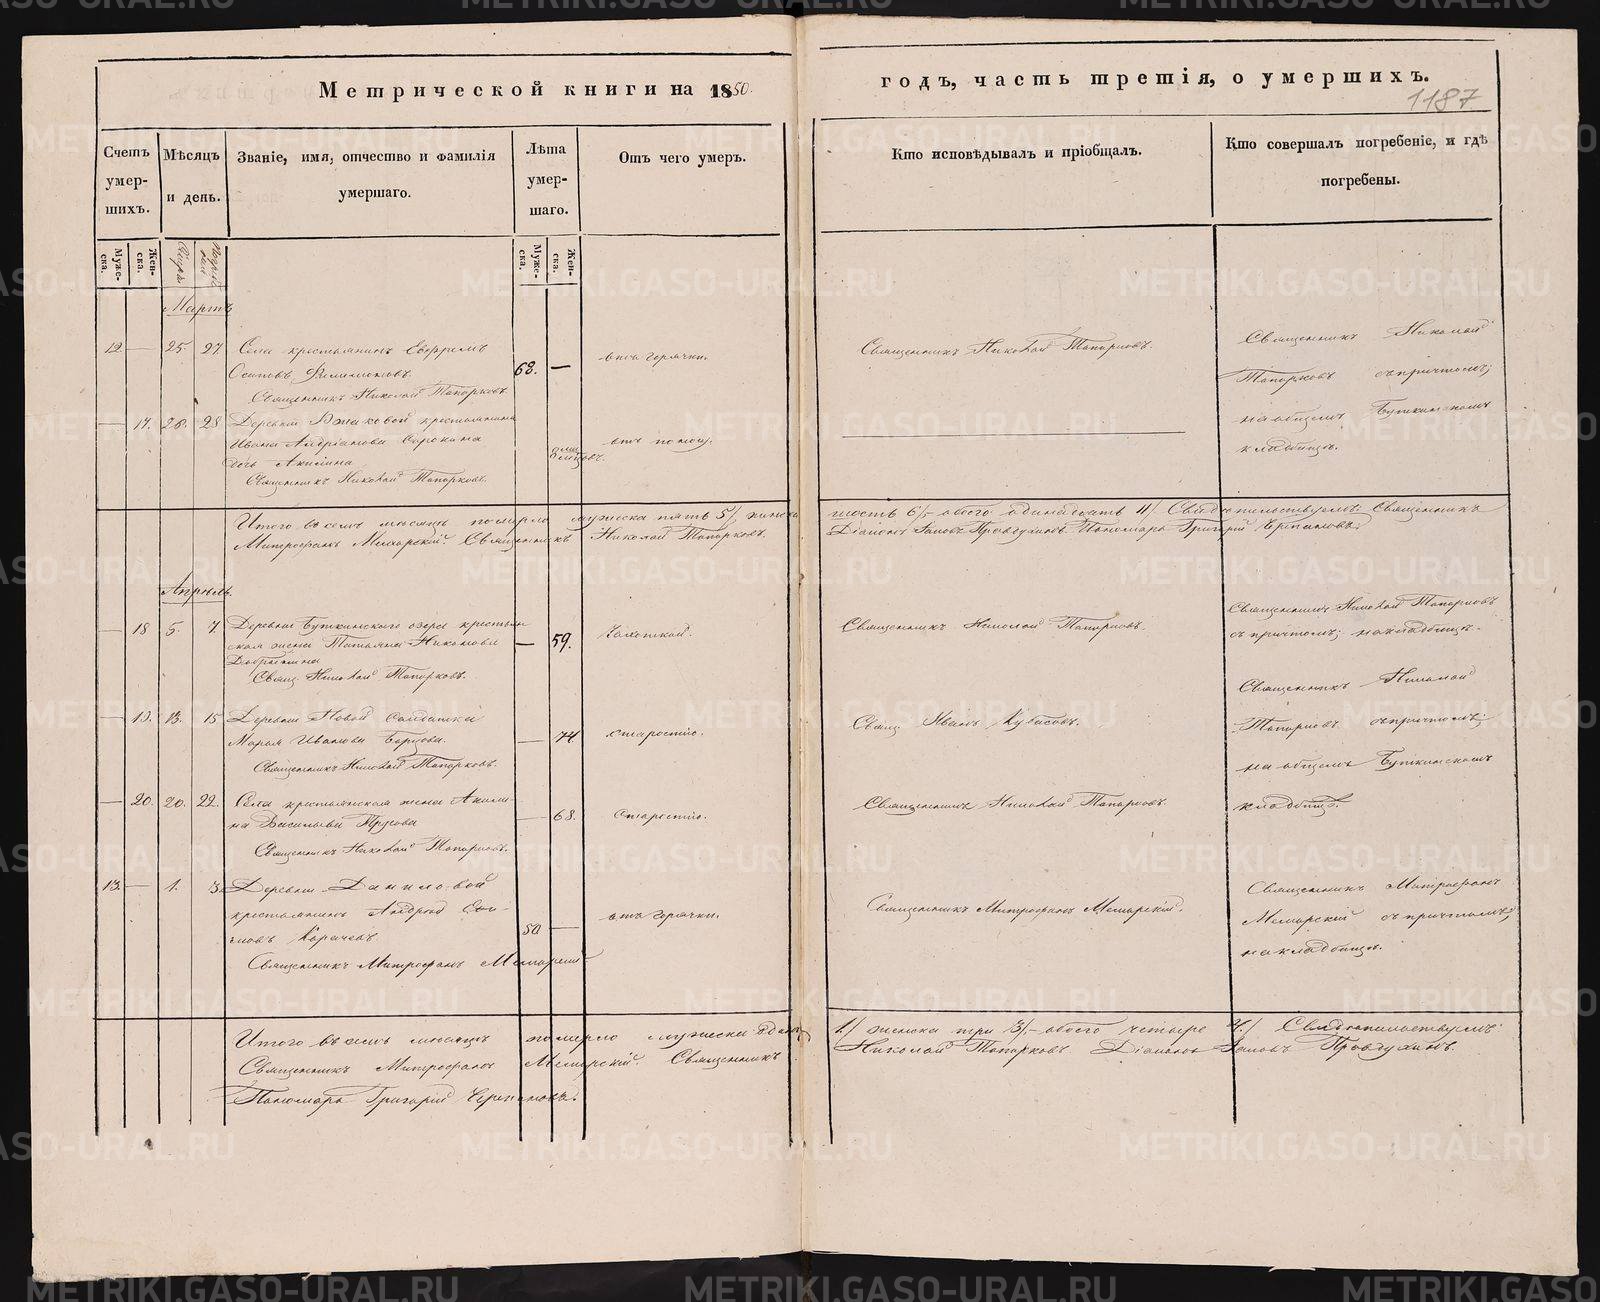 Метрической книги на 1850.
годъ, часть третія, о умершихъ.
1187
Счетъ умер-шихъ.
Мѣсяцъ и день.
Званіе, имя, отчество и фамилія умершаго.
Лѣта умер-шаго.
Отъ чего умеръ.
Кто исповѣдывалъ и пріобщалъ.
Кто совершалъ погребеніе, и гдѣ погребены.
Муже-ска.
Жен-ска.
Муже-ска.
Жен-ска.
Мартъ
12. — 25. 27.
Села крестьянинъ Ефремъ
Осиповъ Филимоновъ.
Священникъ Николай Топорковъ
68. —
отъ горячки.
Священникъ Николай Топорковъ.
Священникъ Николай
Топорковъ съ причтомъ;
на общемъ Буткинскомъ
кладбищѣ.
— 17. 26. 28
крестьянина
Ивана Андріанова Сорокина
дочь Акилина
Священникъ Николай Топорковъ.
отъ поносу.
Итого въ семъ мѣсяцѣ померло мужеска пять 5/ женска
шесть 6/ обоего одинадцать 11/ Свидѣтельствуемъ: Священникъ
Митрофанъ Мемарскій. Священникъ Николай Топорковъ.
Діаконъ Іаковъ Правдухинъ. Пономарь Григорій Черпановъ.
Апрѣль.
— 18 5. 7.
Деревни Буткинского озера крестьян
ская жена Татьяна Никонова
Добрынина
Свящ. Николай Топорковъ.
— 59.
Чахоткой.
Священникъ Николай Топорковъ.
Священникъ Николай Топорковъ
съ причтомъ; на кладбищѣ.
— 19. 13. 15
Деревни Новой солдатка
Марья Иванова
Священникъ Николай Топорковъ.
— 74
старостію.
Свящ. Иванъ Кубасовъ.
Священникъ Николай
Топорковъ съ причтомъ;
на общемъ Буткинскомъ
кладбищѣ.
— 20. 20. 22.
Села крестьянская жена Акили-
на Васильева Трусова
Священникъ Николай Топорковъ.
— 68.
старостію.
Священникъ Николай Топорковъ.
13. — 1. 3.
Деревни Даниловой
крестьянинъ Андрей
Священникъ Митрофанъ Мемарскій
50 —
отъ горячки.
Священникъ Митрофанъ Мемарскій.
Священникъ Митрофанъ
Мемарскій съ причтомъ;
на кладбищѣ.
Итого въ семъ мѣсяцѣ померло мужеска одинъ
1/ женска три 3/ обоего четыре 4/ Свидѣтельствуемъ:
Священникъ Митрофанъ Мемарскій. Священникъ
Николай Топорковъ. Діаконъ Іаковъ Правдухинъ.
Пономарь Григорій Черпановъ.
METRIKI.GASO-URAL.RU